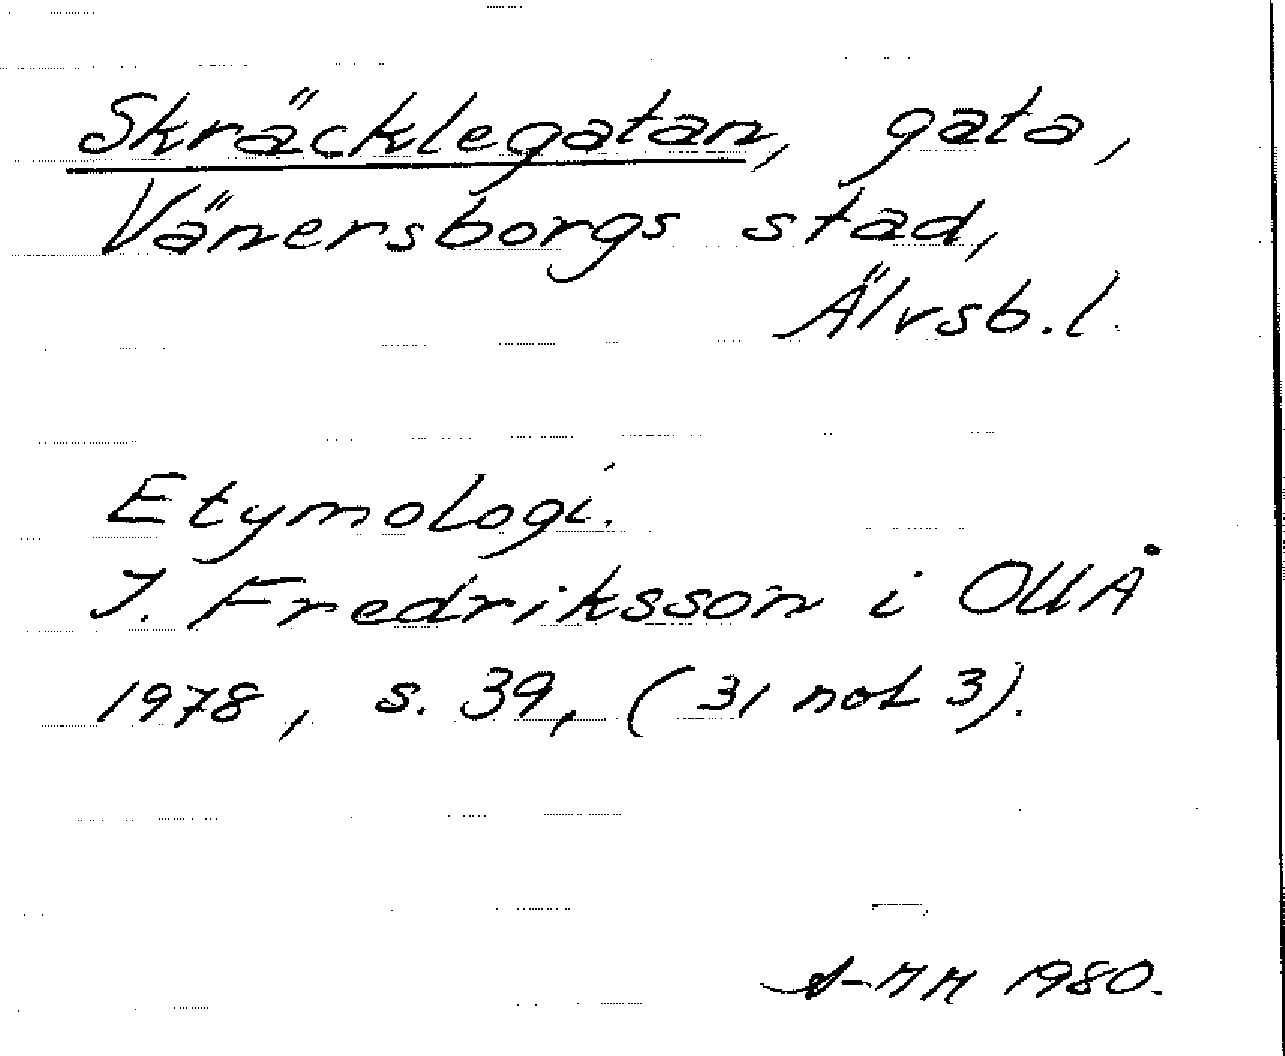 Skräcklegatan, gata,
Vänersborgs stad,
Älvsb. l.
Etymologi.
I. Fredriksson i OUÅ
1978, s. 39, (31 not 3).
A-MM 1980.